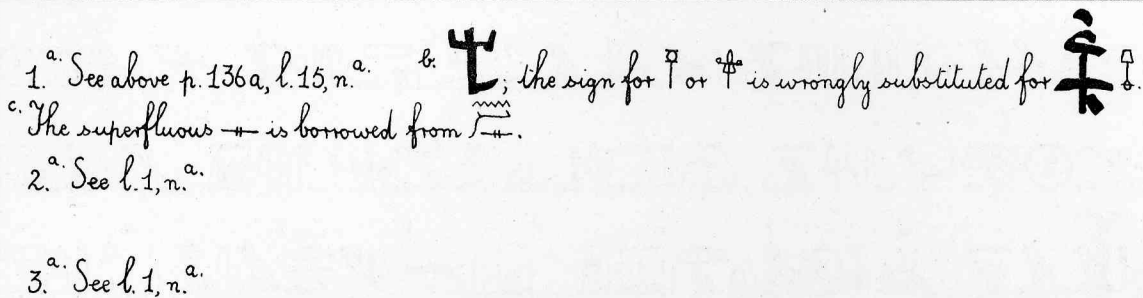 1.a. See above p. 136a, l. 15, n.a. b. ; the sign for 𓌉 or is wrongly substituted for
c. The superfluous 𓊃 is borrowed from
2.a. See l. 1, n.a.
3.a. See l. 1, n.a.